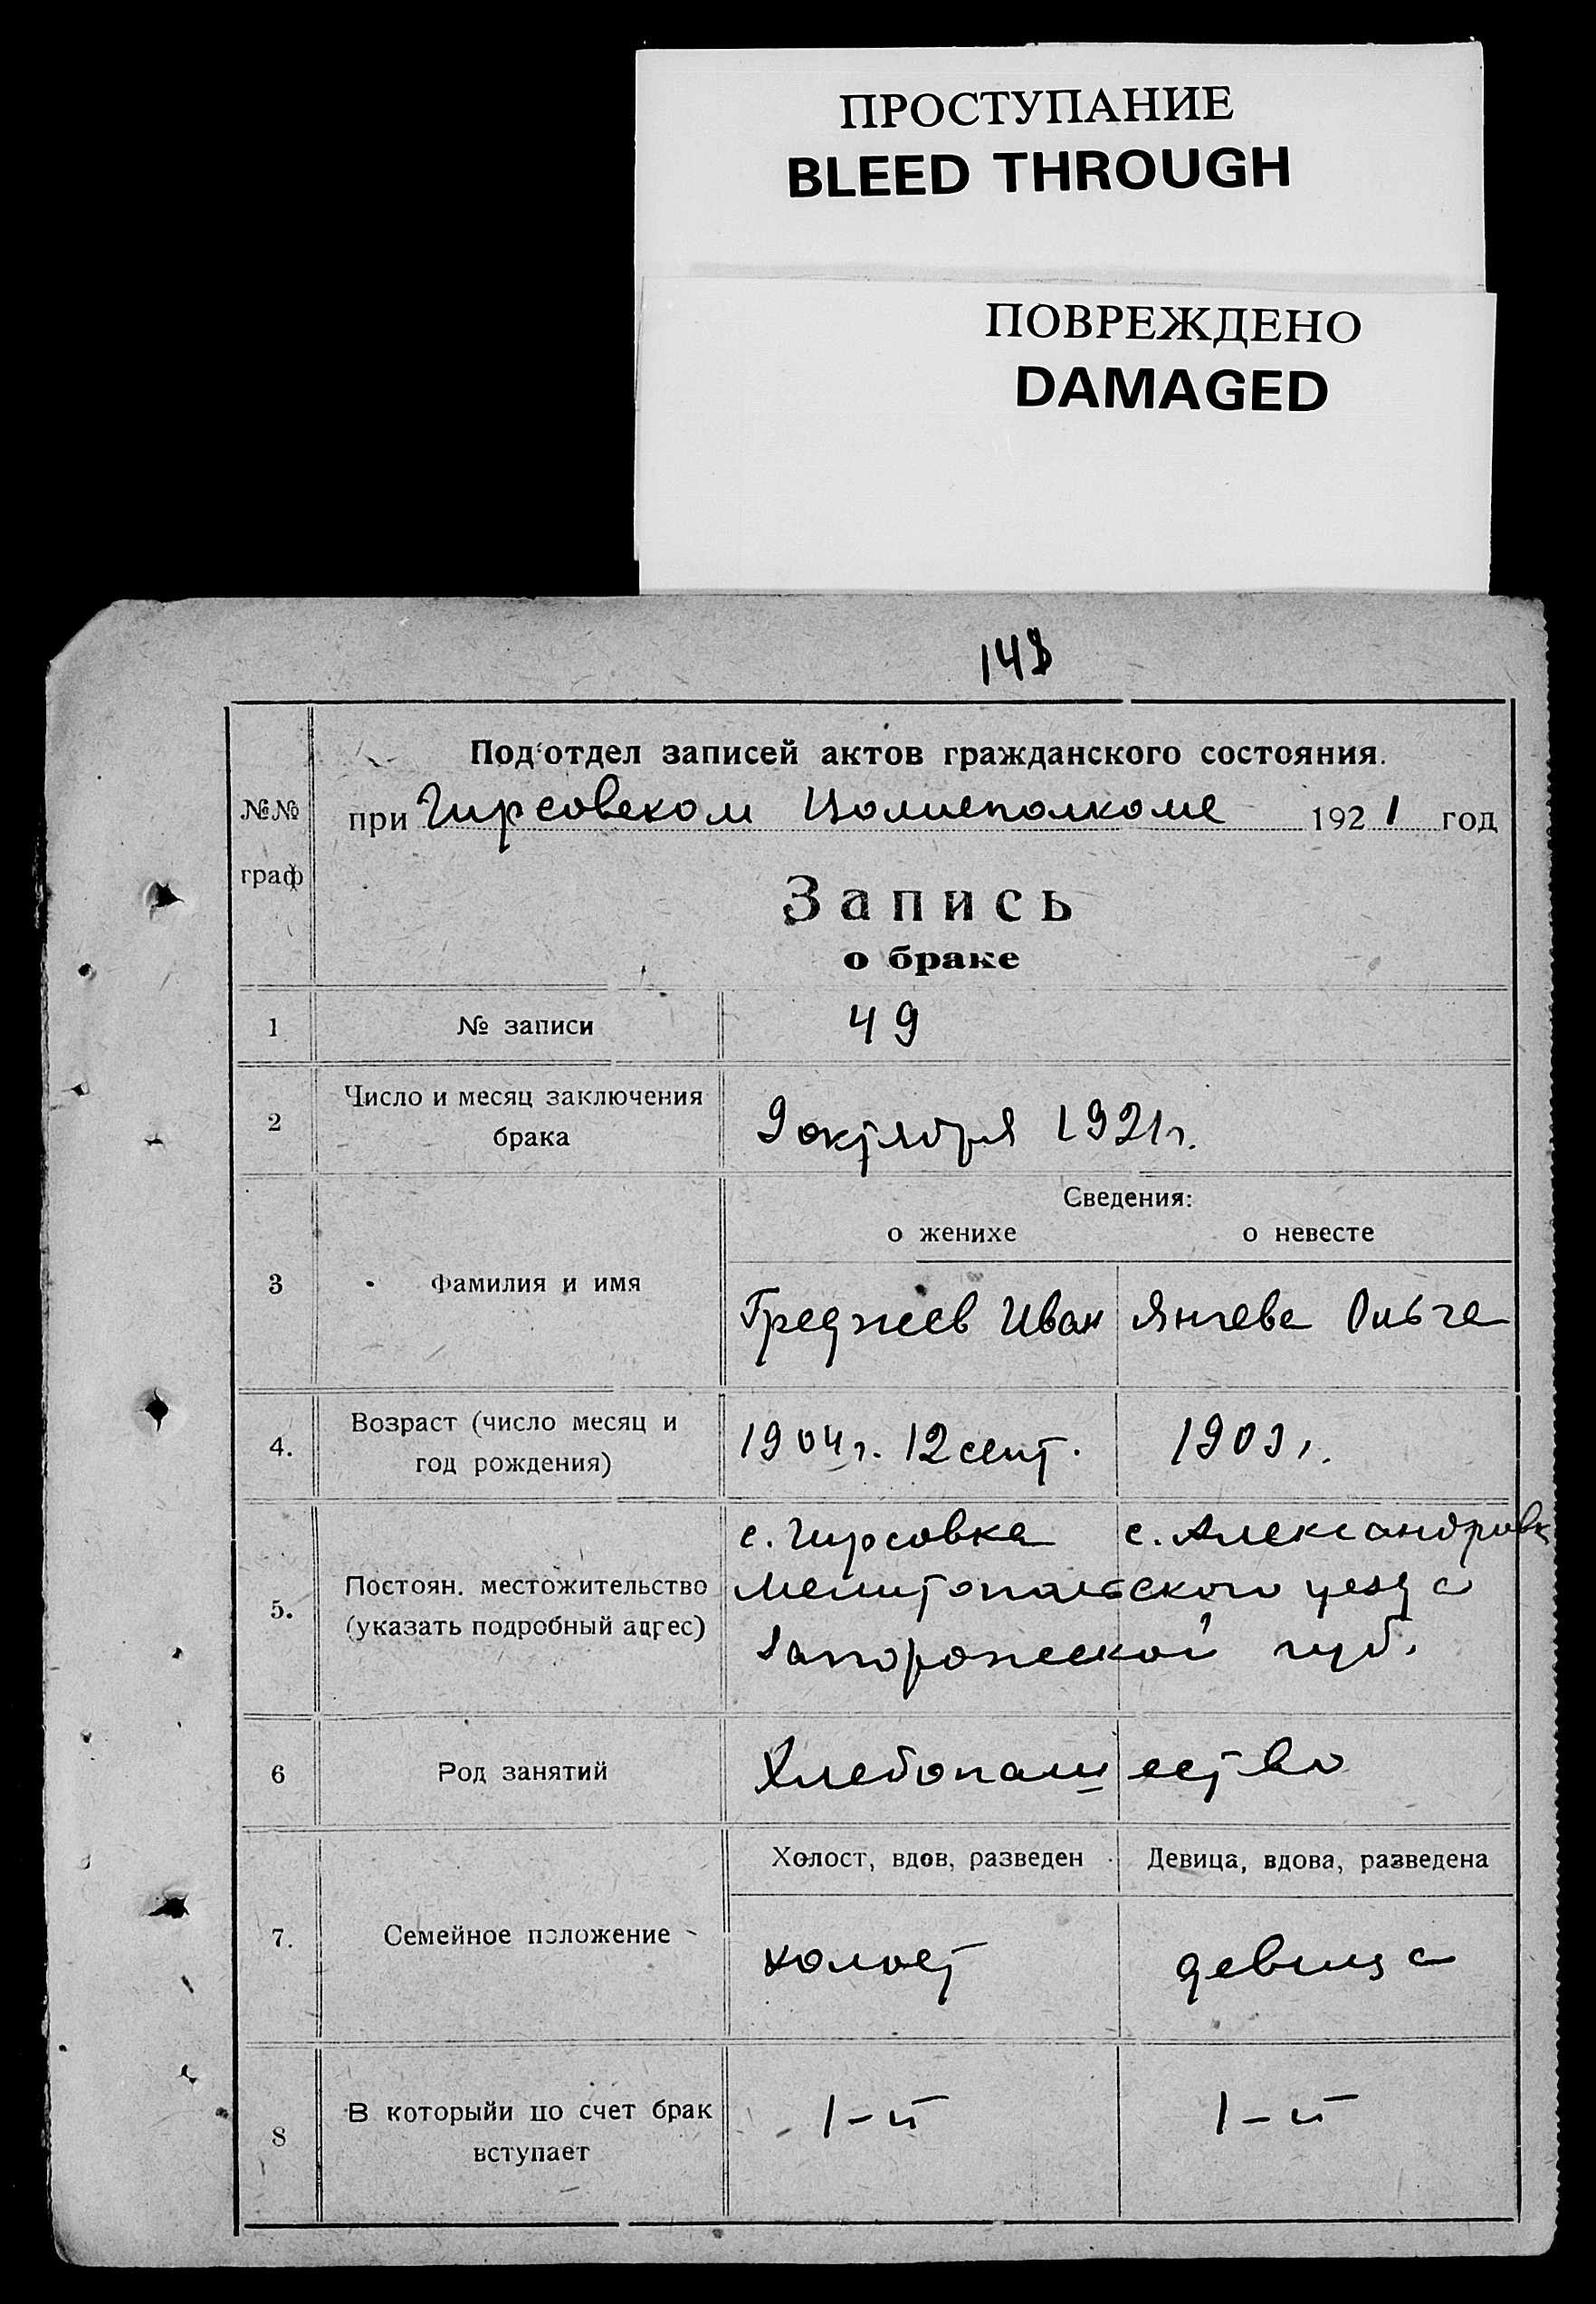 ПРОСТУПАНИЕ
BLEED THROUGH
ПОВРЕЖДЕНО
DAMAGED
148
Под‘отдел записей актов гражданского состояния.
№№ граф
при Гирсовском Волисполкоме 1921 год
Запись
о браке
1 № записи 49
2 Число и месяц заключения брака 9 октября 1921 г.
Сведения:
о женихе о невесте
3 Фамилия и имя Греджев Иван Янчева Ольга
4. Возраст (число месяц и год рождения) 1904 г. 12 сент. 1903 г.
5. Постоян. местожительство (указать подробный адрес) с. Гирсовка с. Александровк
Мелитопольского уезда
Запорожской губ.
6 Род занятий Хлебопашество
Холост, вдов, разведен Девица, вдова, разведена
7. Семейное положение холост девица
8 В которыйи по счет брак вступает 1-й 1-й